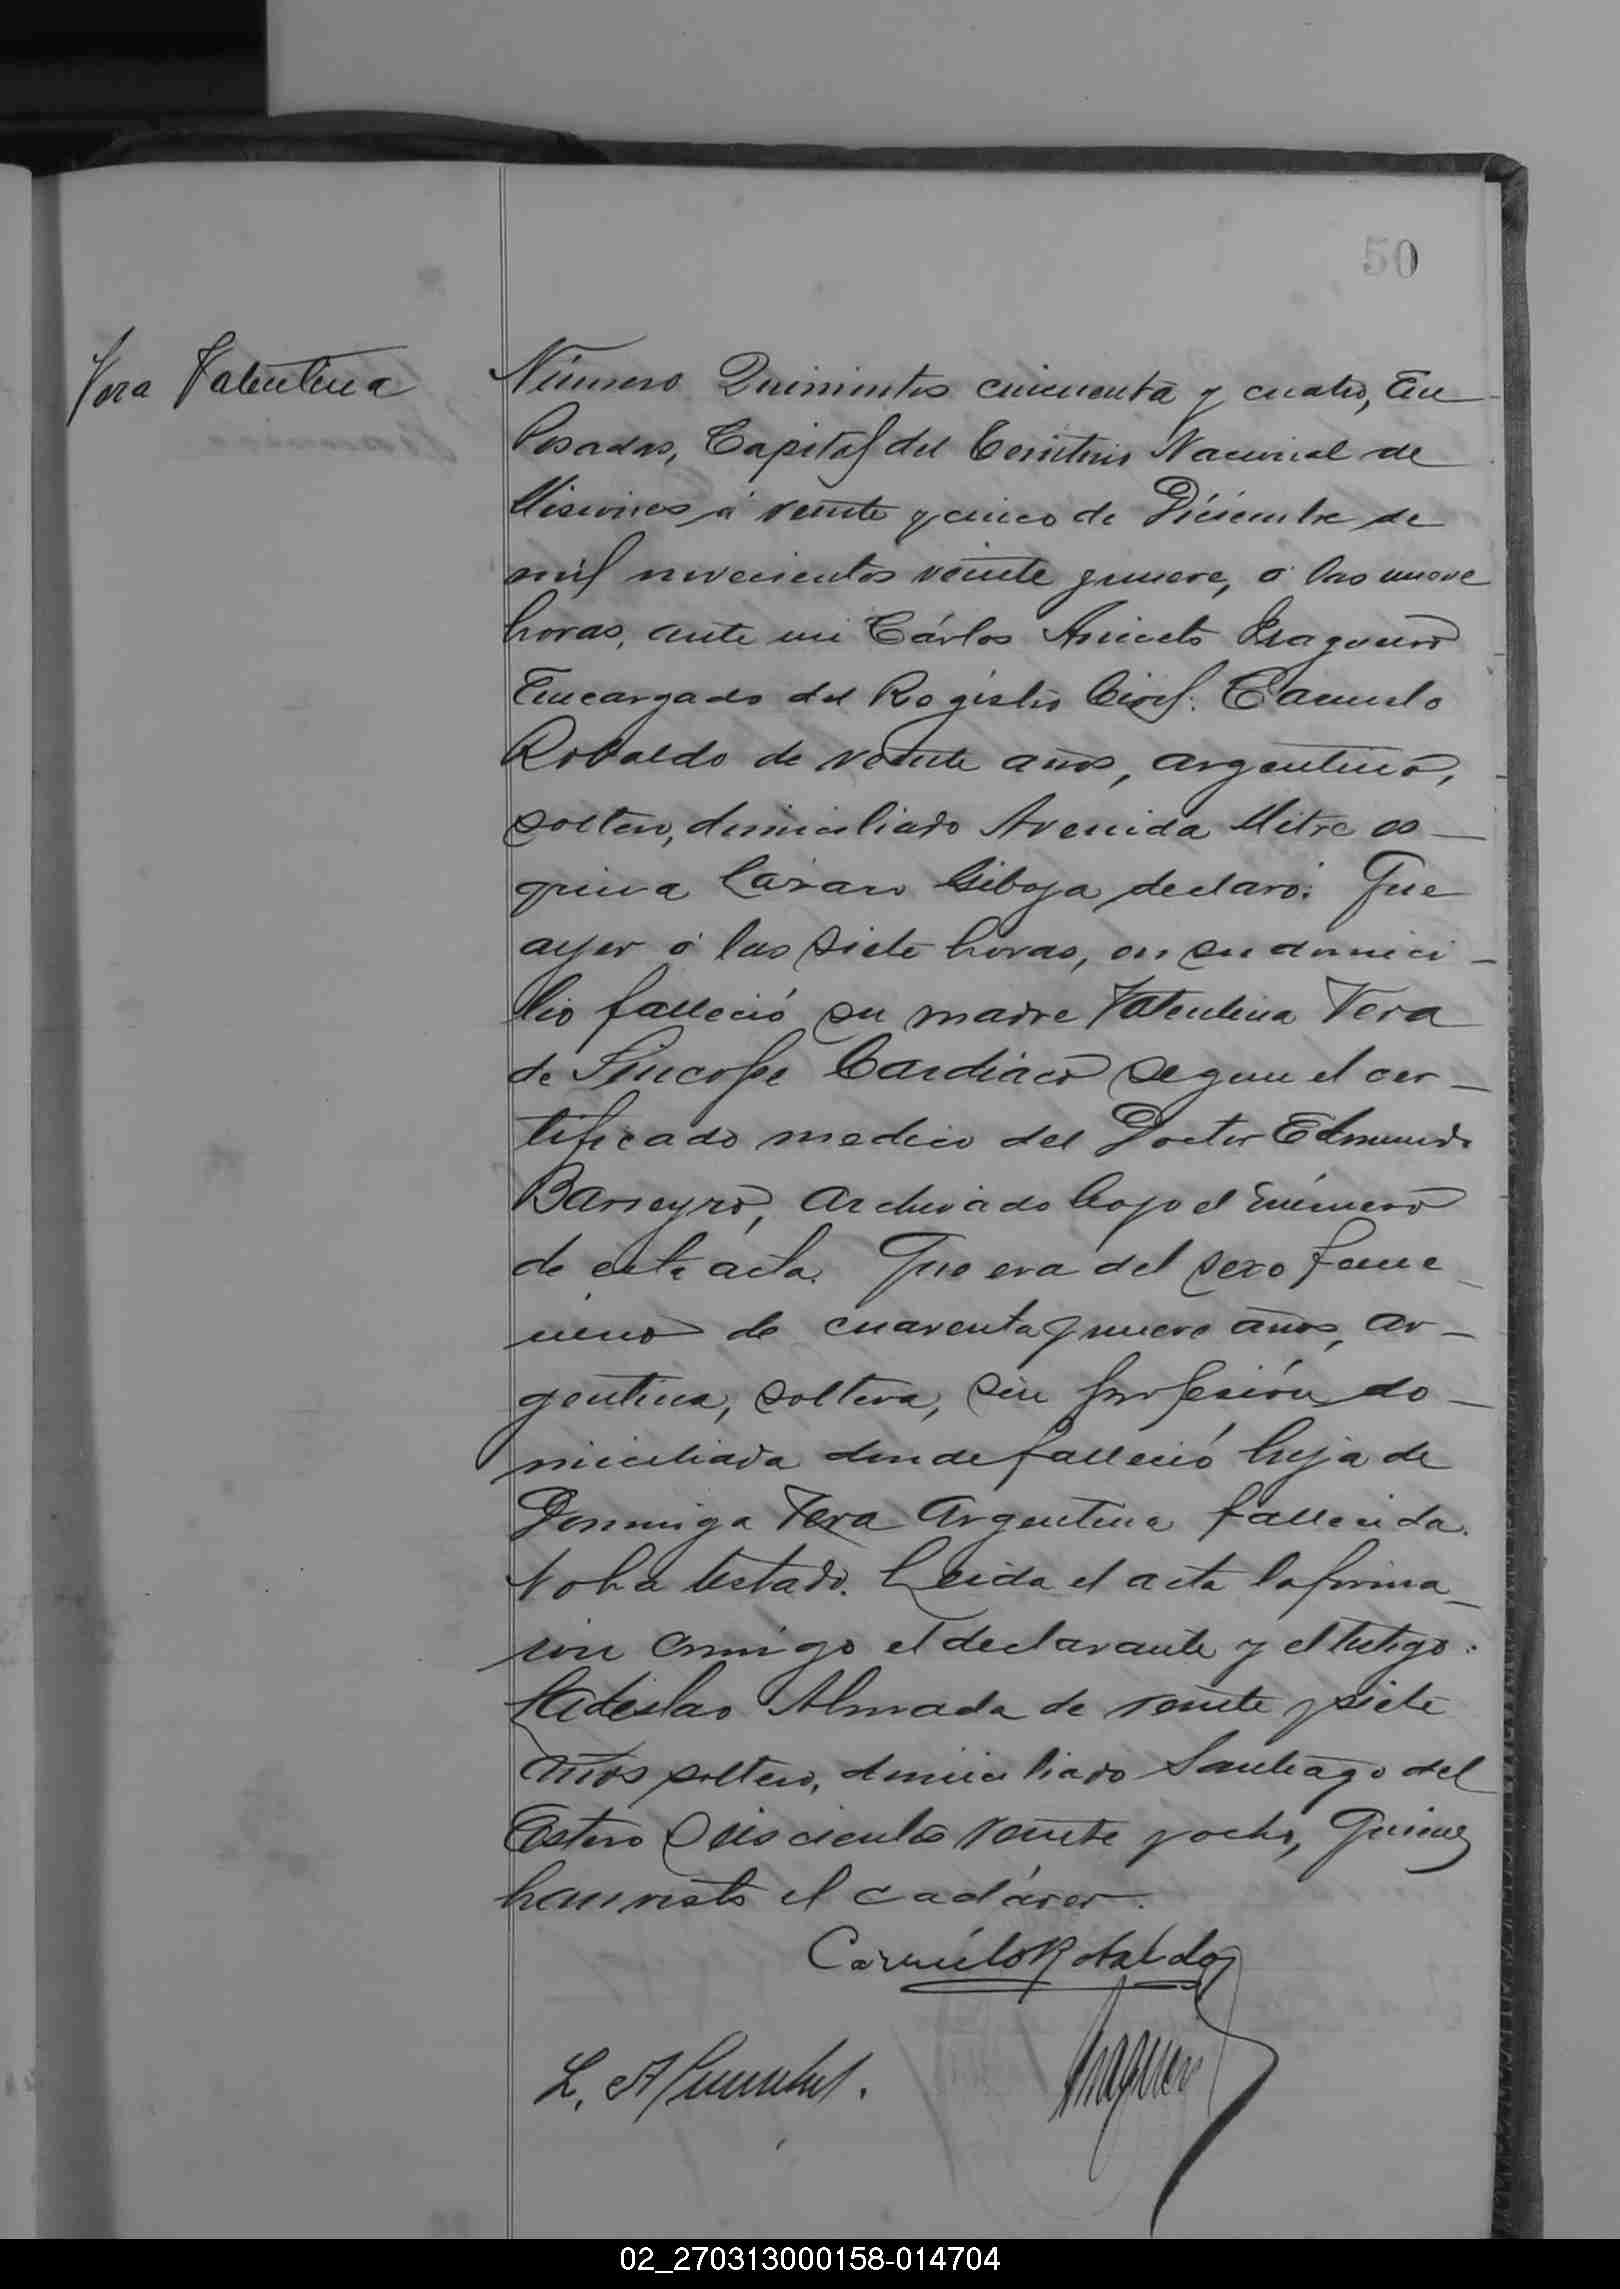 50
Vera Valentina
Número Quinientos cincuenta y cuatro, En
Posadas, Capital del Territorio Nacional de
Misiones á veinte y cinco de Diciembre de
mil novecientos veinte y nueve, á las nueve
horas, ante mi Cárlos Aniceto
Encargado del Registro Civil: Carmelo
Robaldo de veinte años, argentino,
soltero, domiciliado Avenida Mitre es-
quina Lázaro Gibaja declaró: Que
ayer á las siete horas, en su domici-
lio falleció su madre Valentina Vera
de Sincope Cardiaco segun el cer-
tificado medico del Doctor Edmundo
Barreyro, archivado bajo el número
de esta acta. Que era del sexo feme-
nino de cuarenta y nueve años, ar-
gentina, soltera, sin profesión do-
miciliada donde falleció hija de
Dominga Vera Argentina fallecida.
No ha testado. Leida el acta la firma-
ron conmigo el declarante y el testigo:
Ladislao Almada de veinte y siete
años soltero, domiciliado Santiago del
Estero seiscientos veinte y ocho, quienes
han visto el cadáver.
Carmelo Robaldo
L. A
02_270313000158-014704